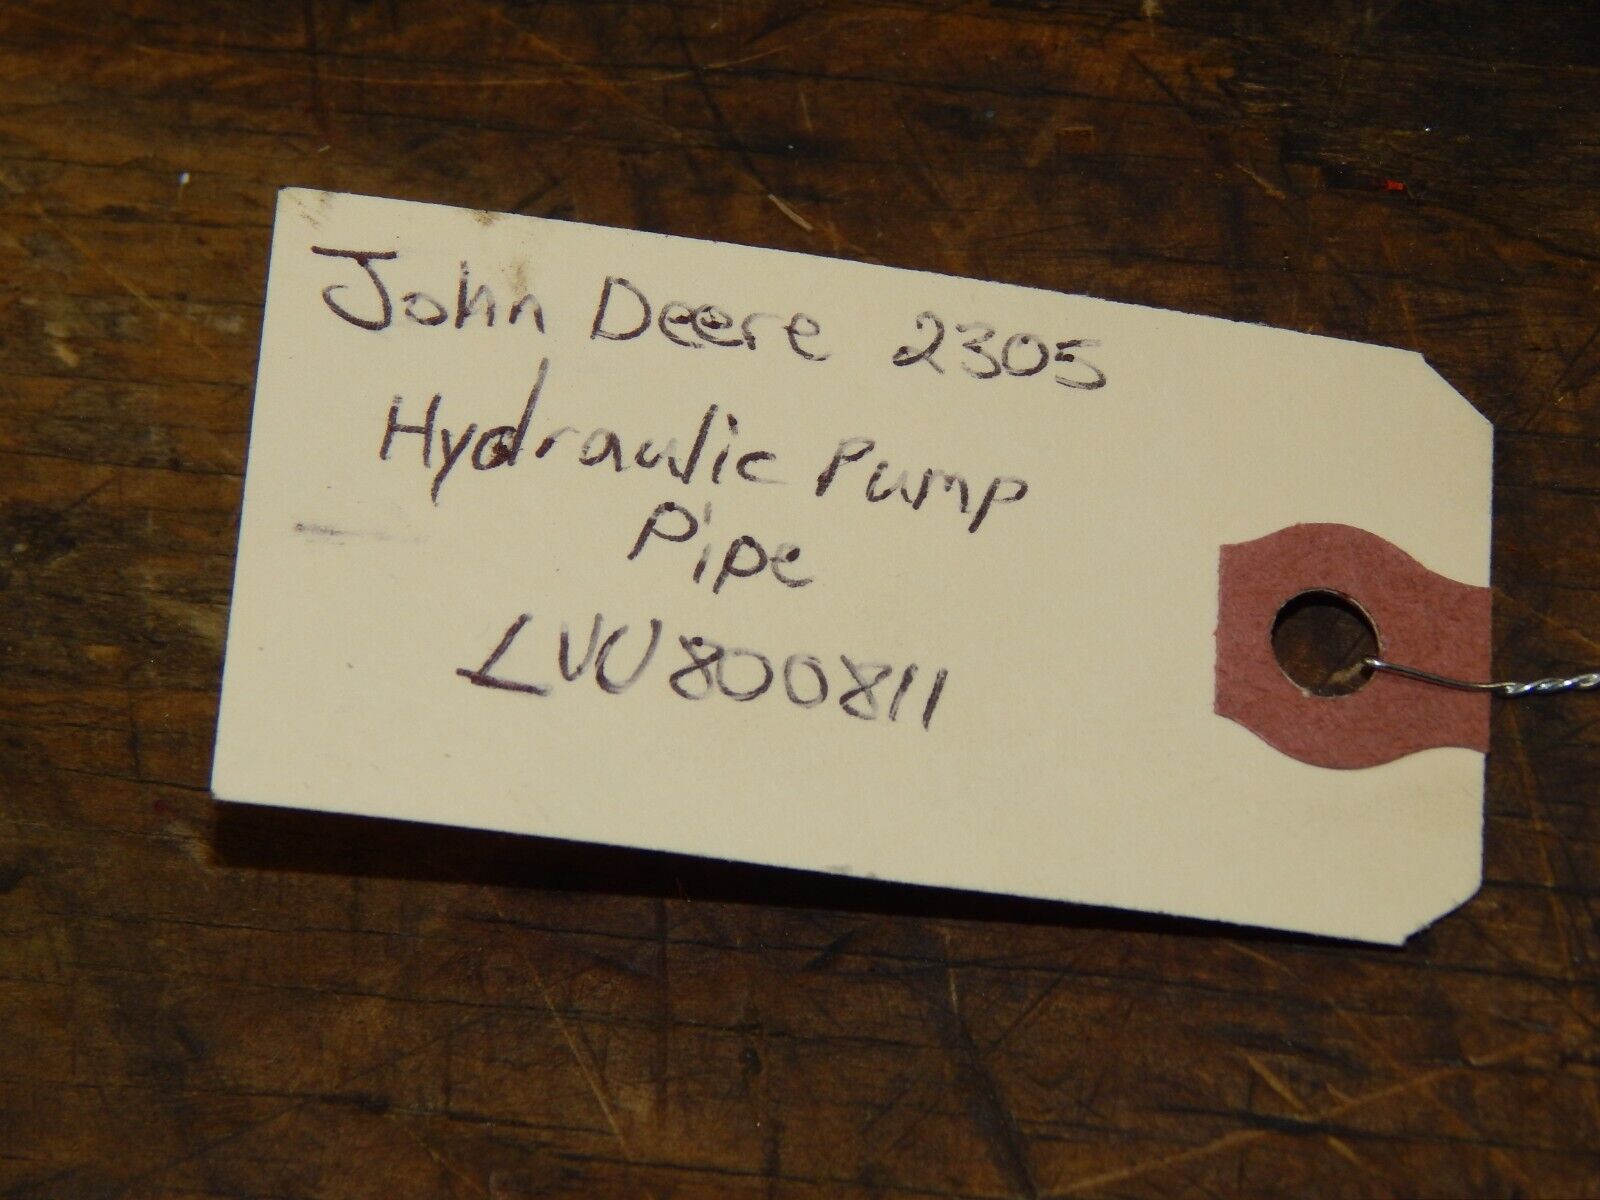 John Deere 2305
Hydraulic Pump
Pipe
LVU800811